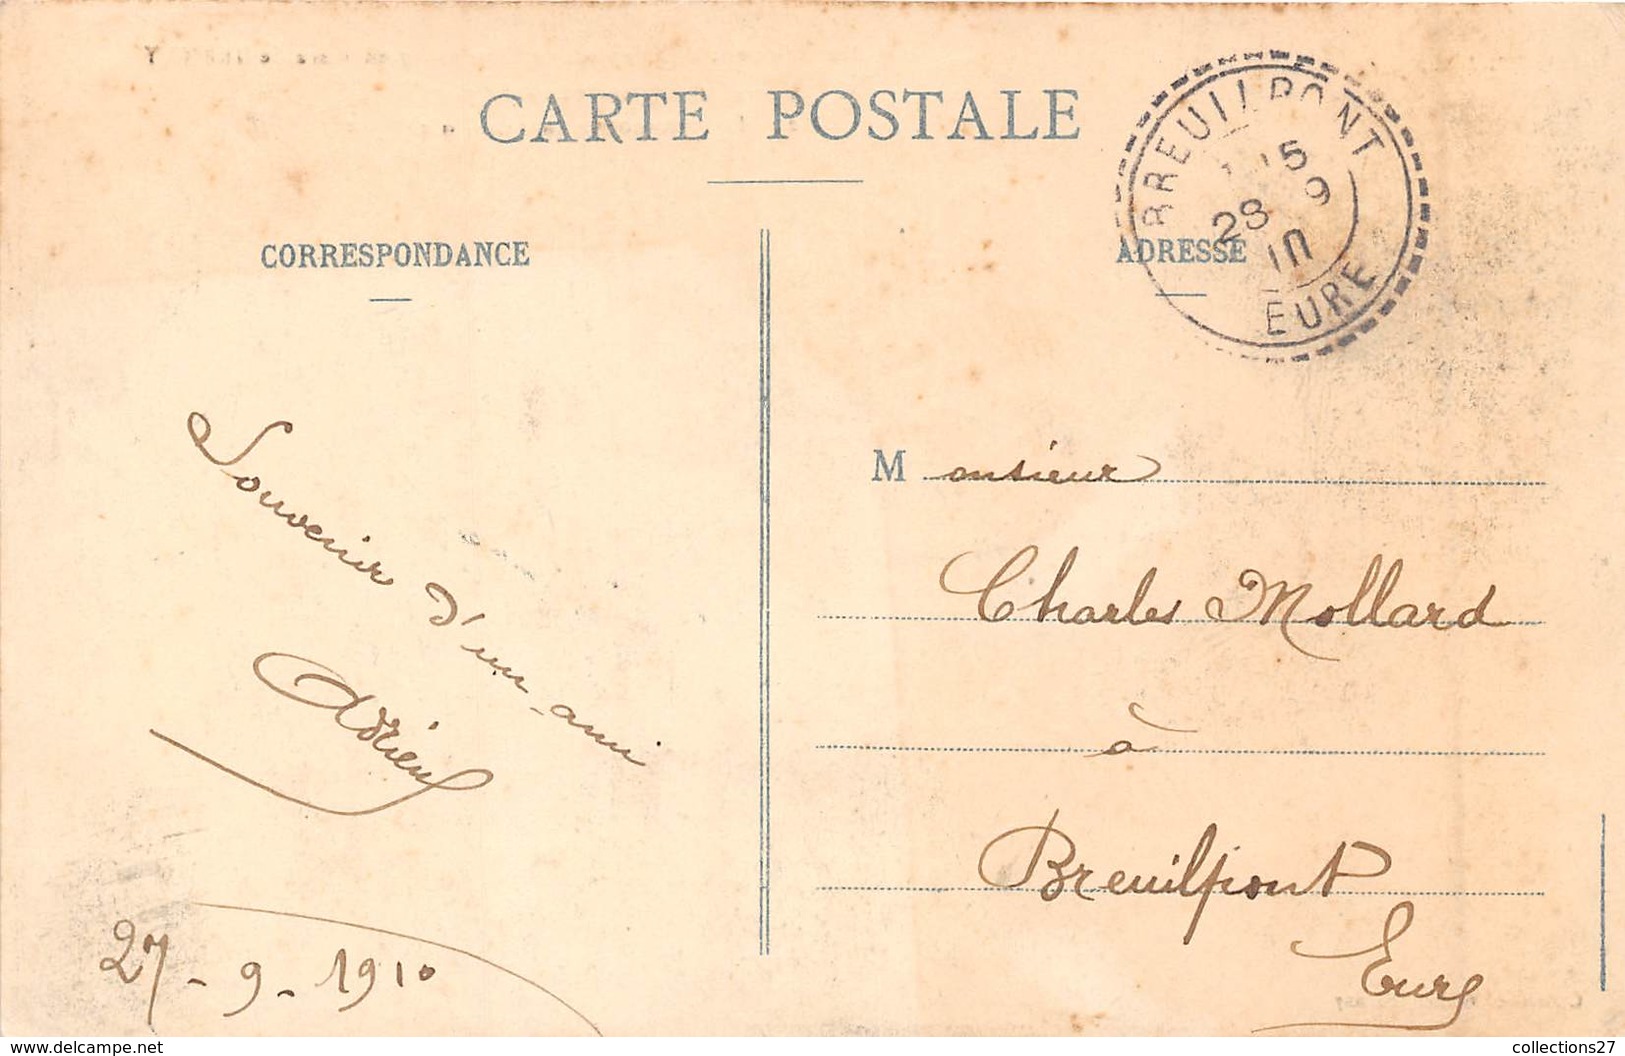 CARTE POSTALE
BREUILPONT
15
28 9
10
EURE
CORRESPONDANCE
ADRESSE
Souvenir d'un ami
Adrien
27-9-1910
Monsieur
Charles Mollard
à
Breuilpont
Eure
delcampe.net
collections27